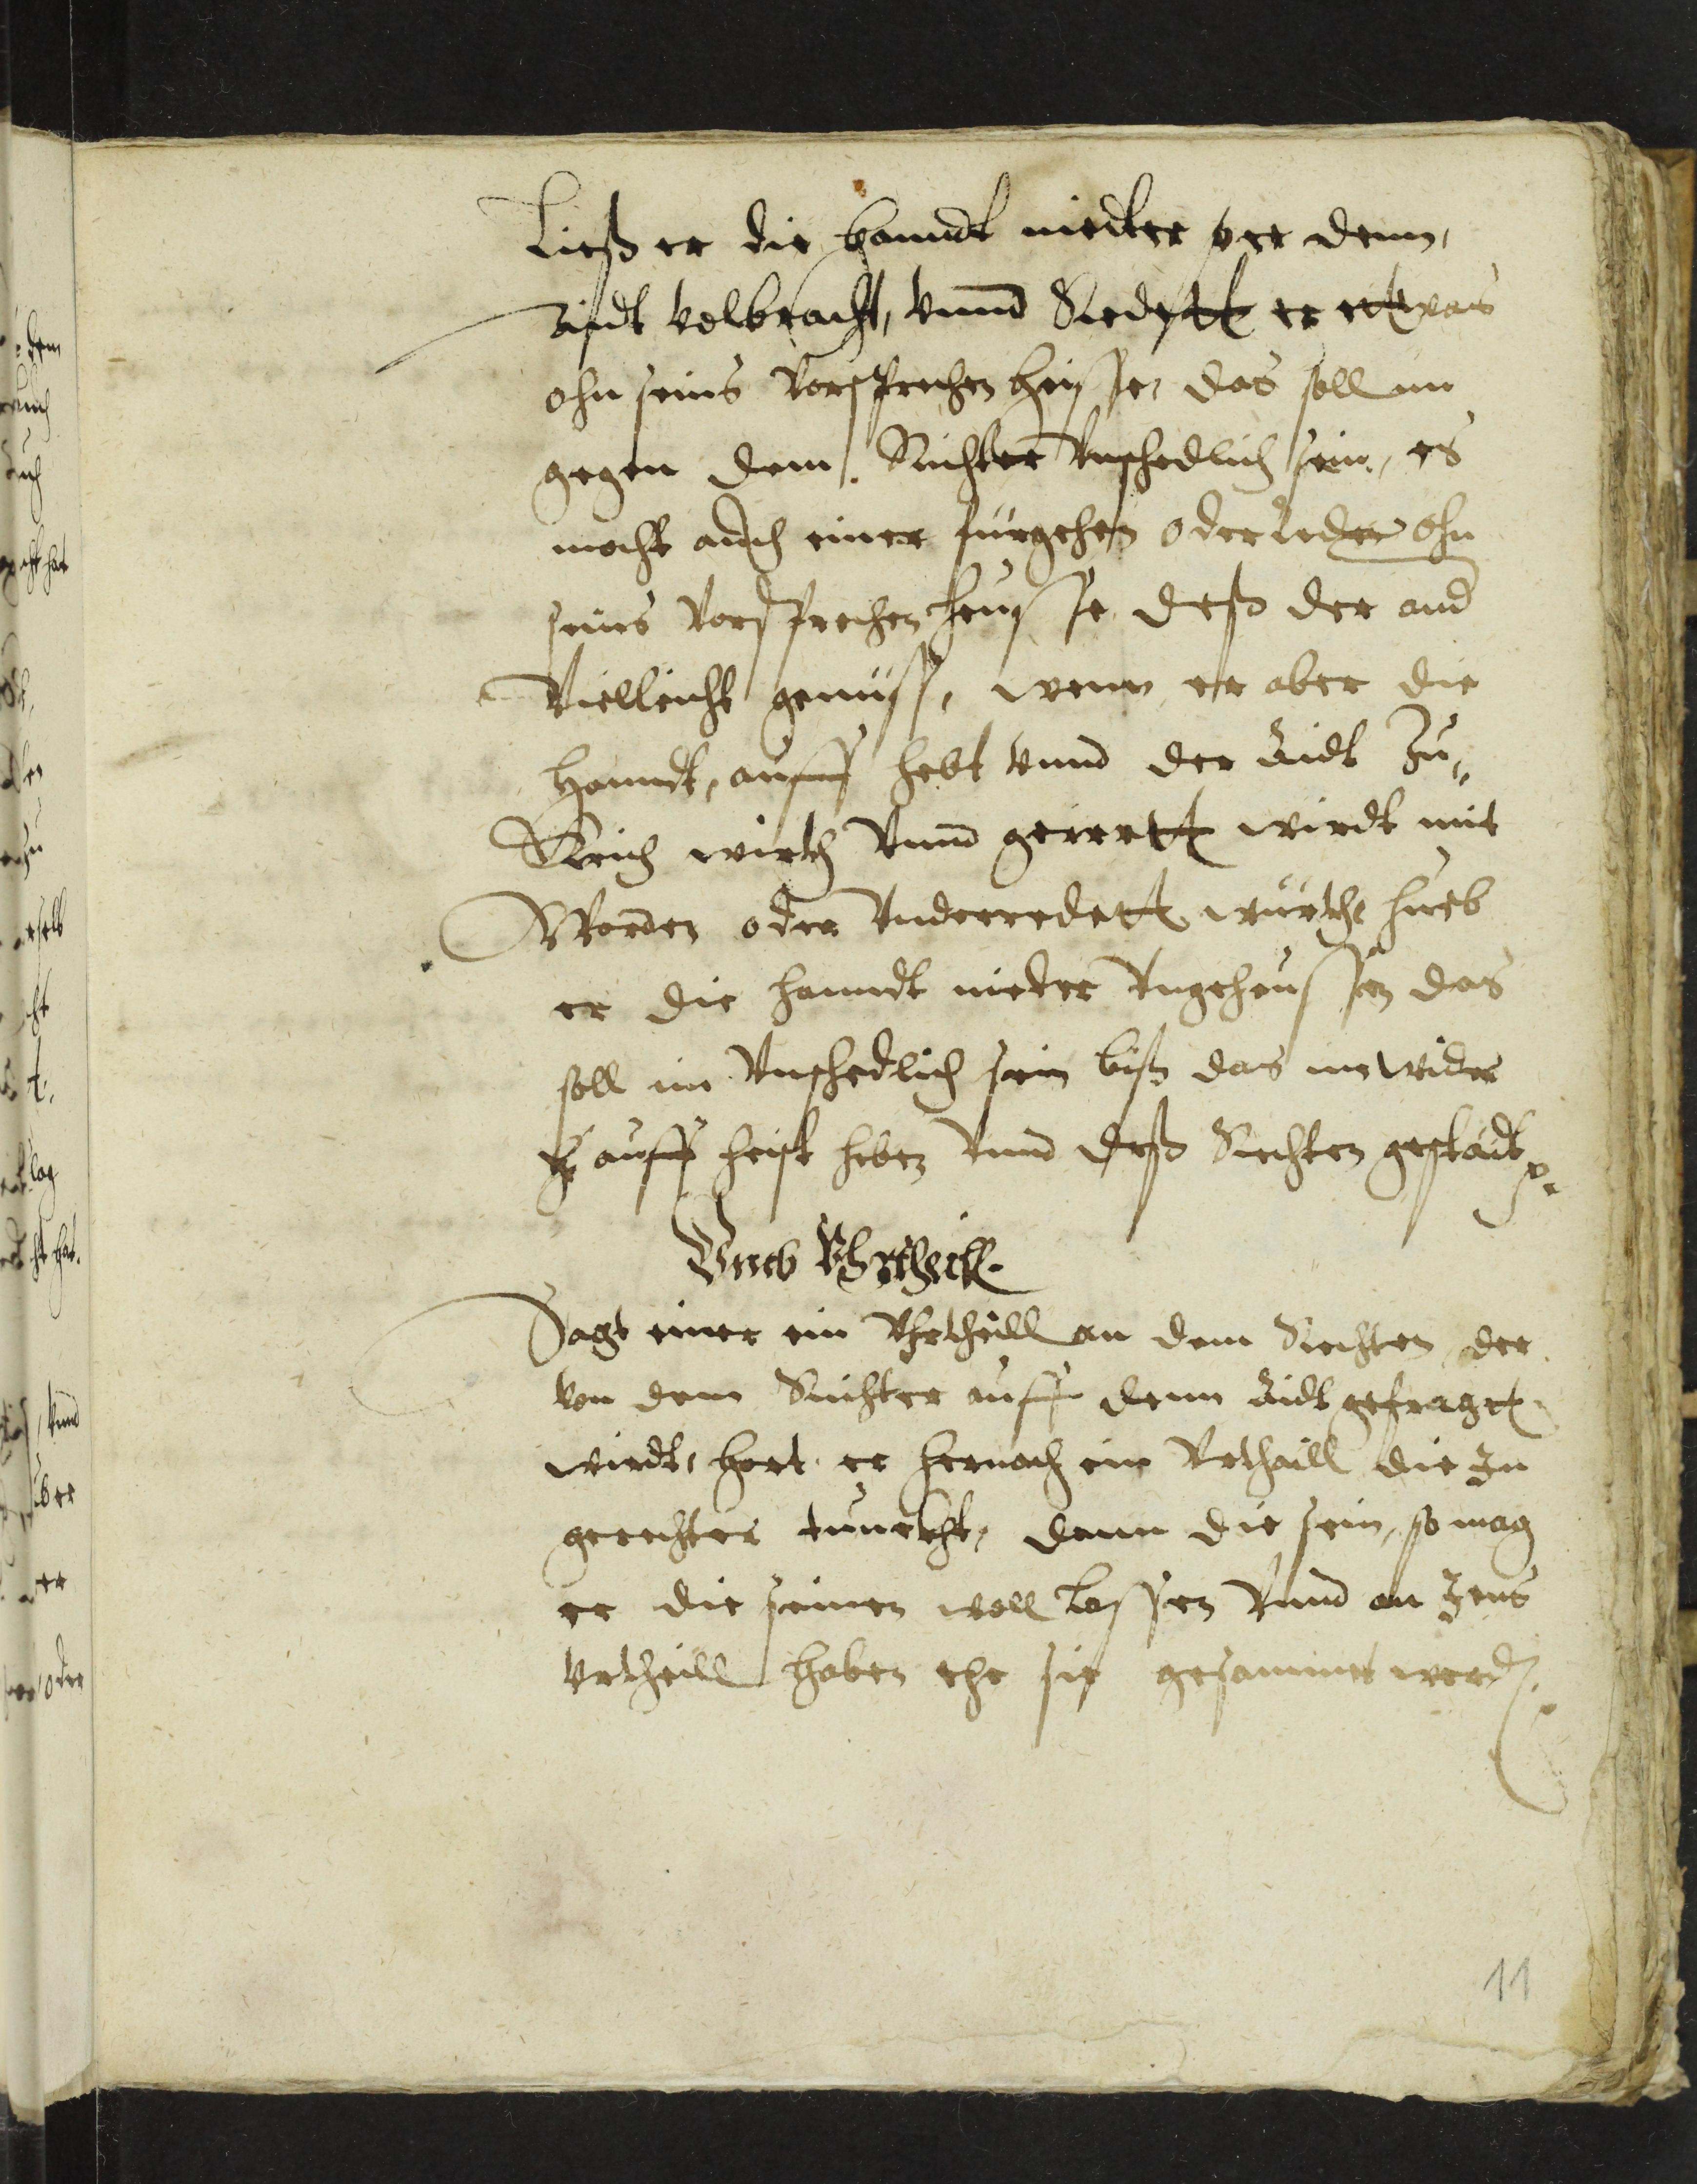 Ließ er die hanndt niedter vor dem
Aidt volbracht, vnnd Redett er ettwas
ohn seins Vorsprechen heisse, das soll im
gegen dem Richter Vnschedlich sein, es
mocht auch einer fürgehen oder reder ohn
seines Vorsprechen heusse deß der and
Villeicht genüß, wenn er aber die
Hanndt, auff hebt vnnd der Aidt Zu
Reich wirth Vnnd geirrett wirdt mit
Wordten oder Vnderredett würth hueb
er die hanndt nieder Vngeheussen das
soll im Vnschedlich sein biß das im wider
auff heist heben Vnnd deß Rechten gestadt
Vmb Vhrtheill.
Sagt einer ein Vhrtheill an dem Rechten der
von dem Richter auff denn Aidt gefraget
wirdt, hort er hernach ein Vrthaill die In
gerechter tunckht, dann die sein, so mag
er die seinen woll lassen Vnnd an Jens
vrtheill haben ehe sie gesammet werd.
11